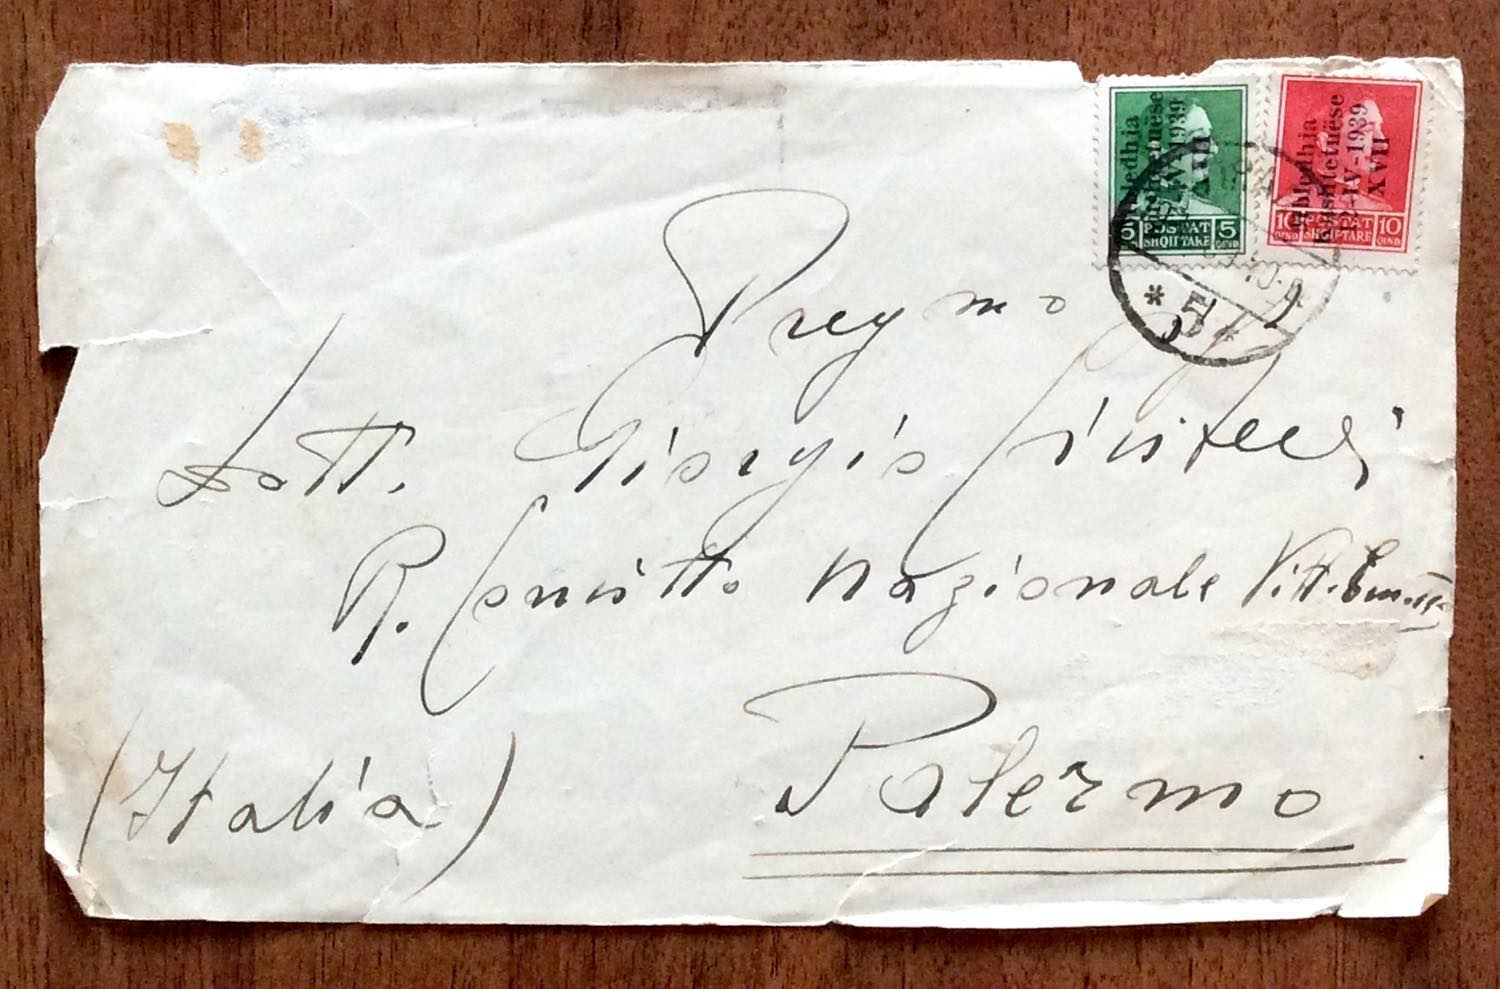 Mbledhja
Kushtetuëse
12-IV-1939
XVII
5 POSTAT 5
SHQIPTARE QIND
Mbledhja
Kushtetuëse
12-IV-1939
XVII
10 POSTAT 10
QIND SHQIPTARE QIND
* 5 *
Pregmo
Dott. Giorgio
R. Convitto Nazionale Vitt. Em.
Palermo
(Italia)